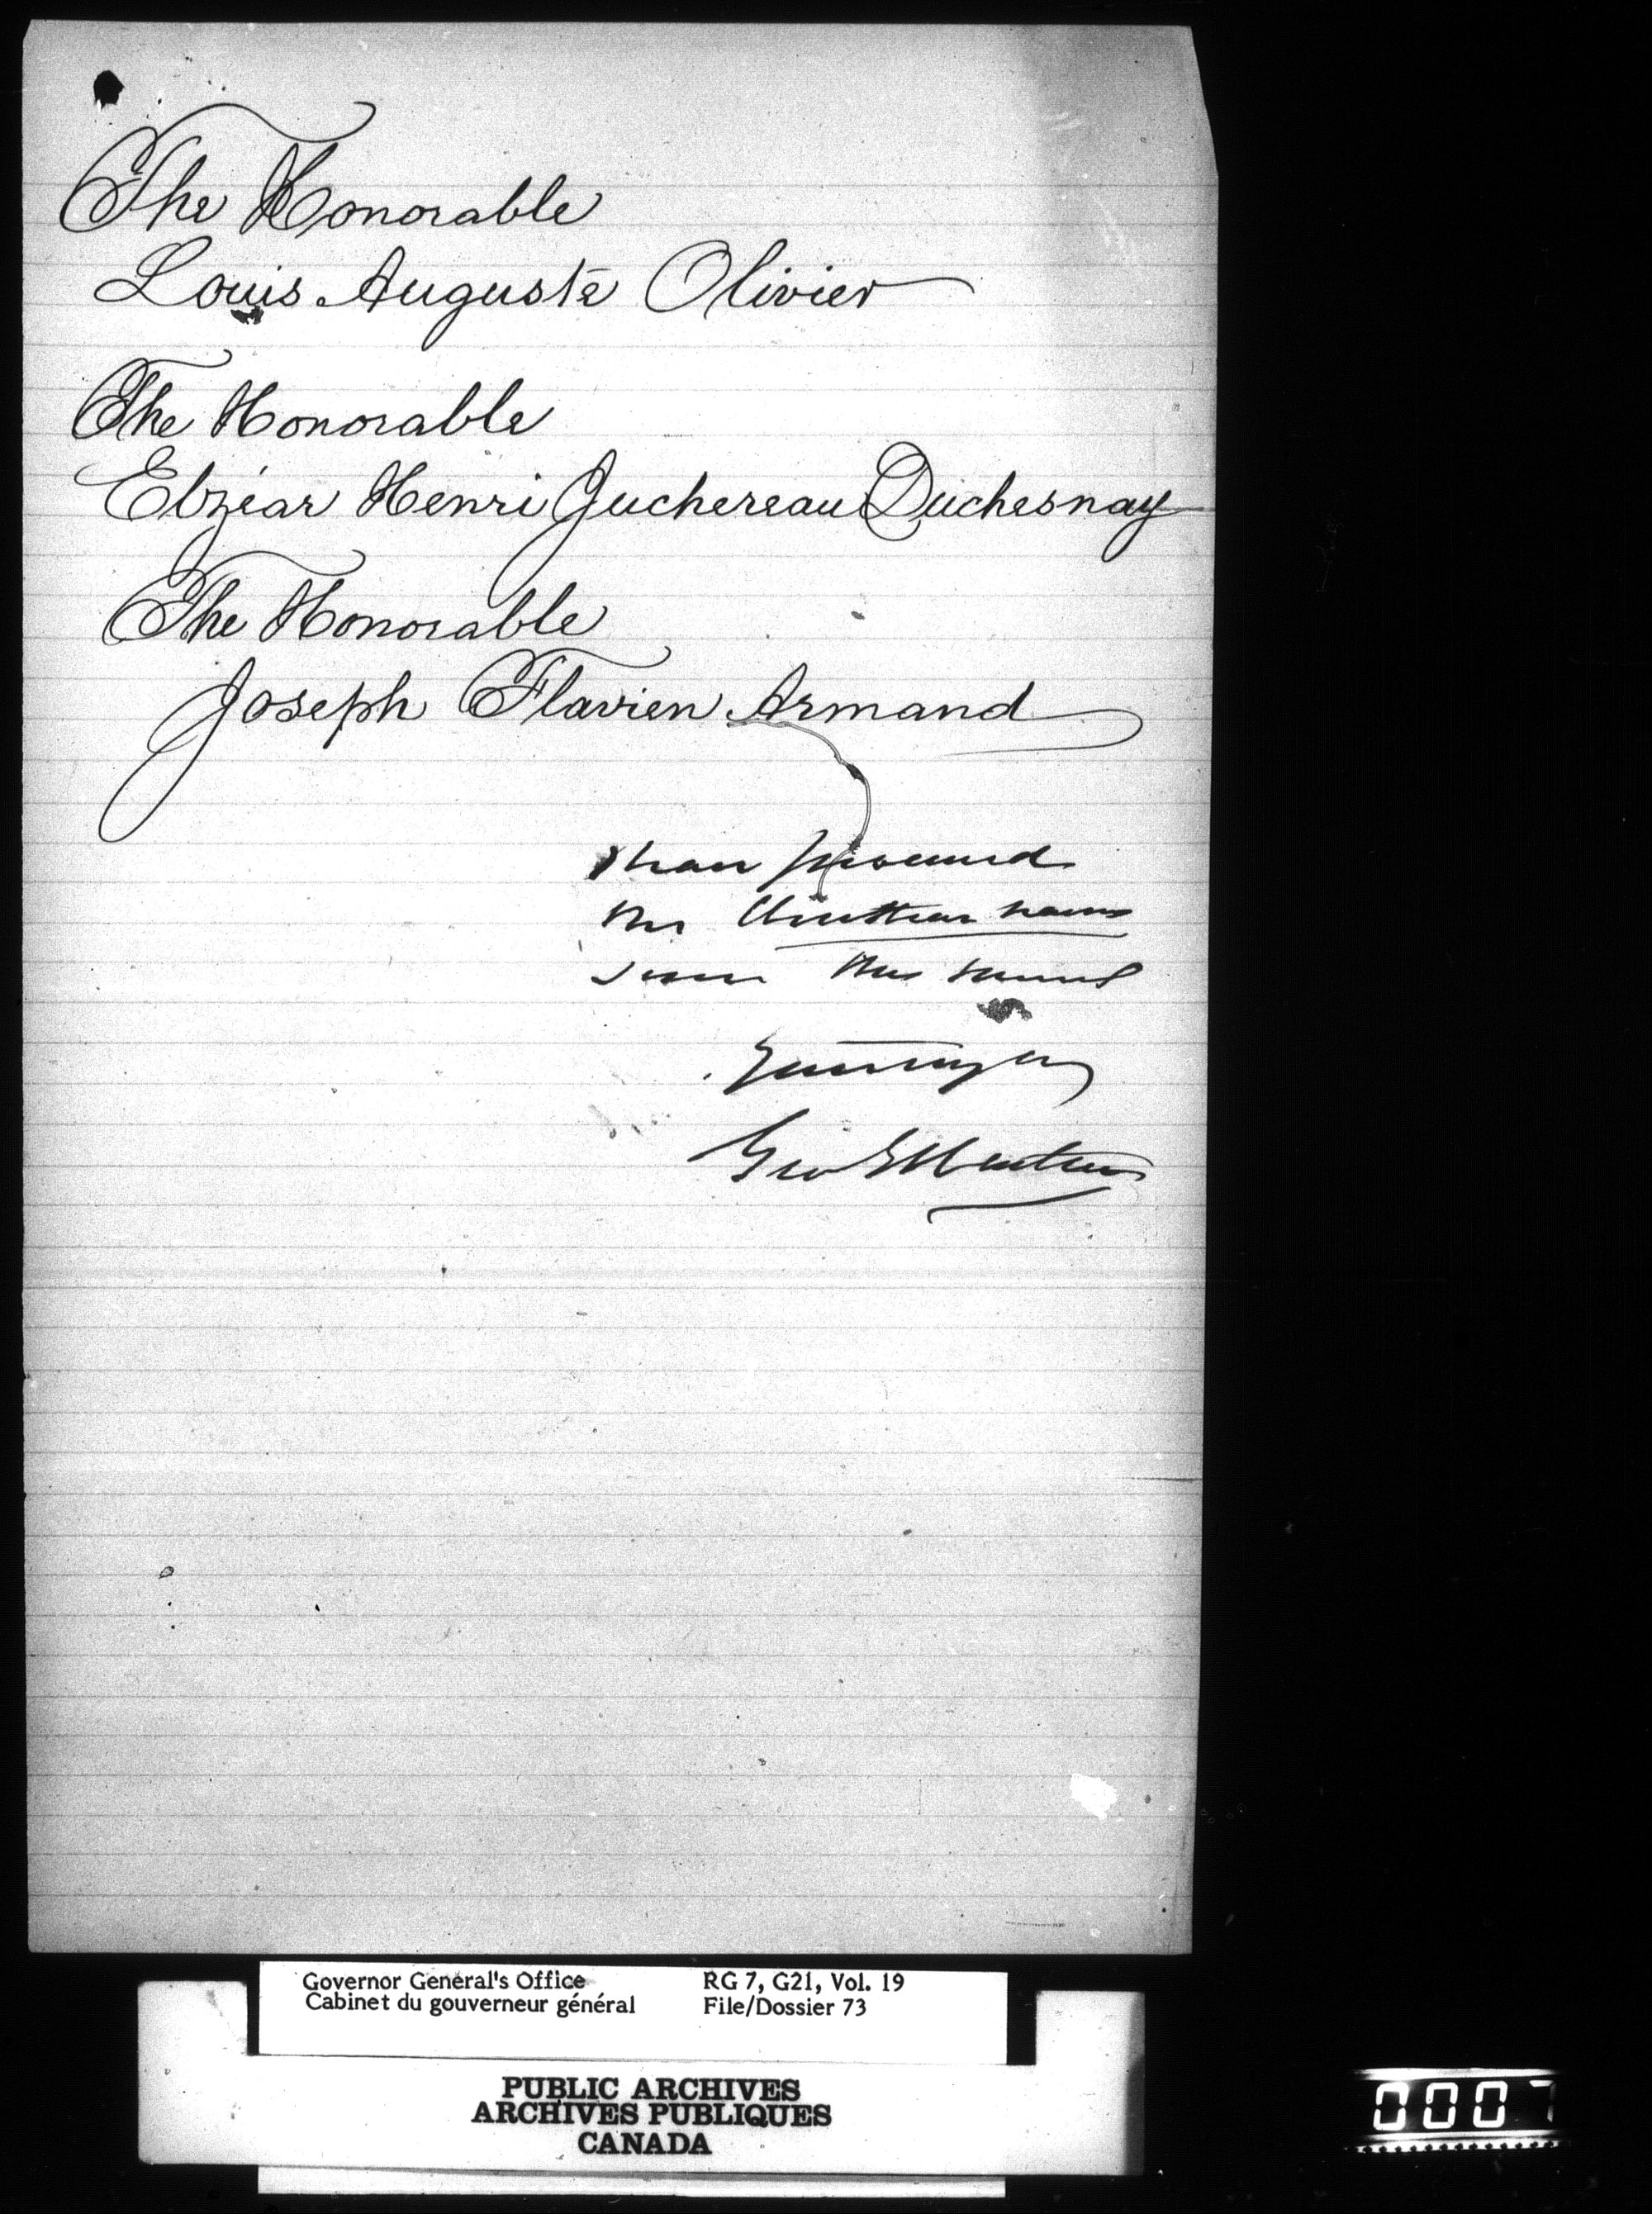 The Honorable
Louis Auguste Olivier
The Honorable
Elzéar Henri Juchereau Duchesnay
The Honorable
Joseph Flavien Armand
I have procured
the Christian names
Geo E Cartier
Governor General's Office RG 7, G21, Vol. 19
Cabinet du gouverneur général File/Dossier 73
PUBLIC ARCHIVES
ARCHIVES PUBLIQUES
CANADA
0007